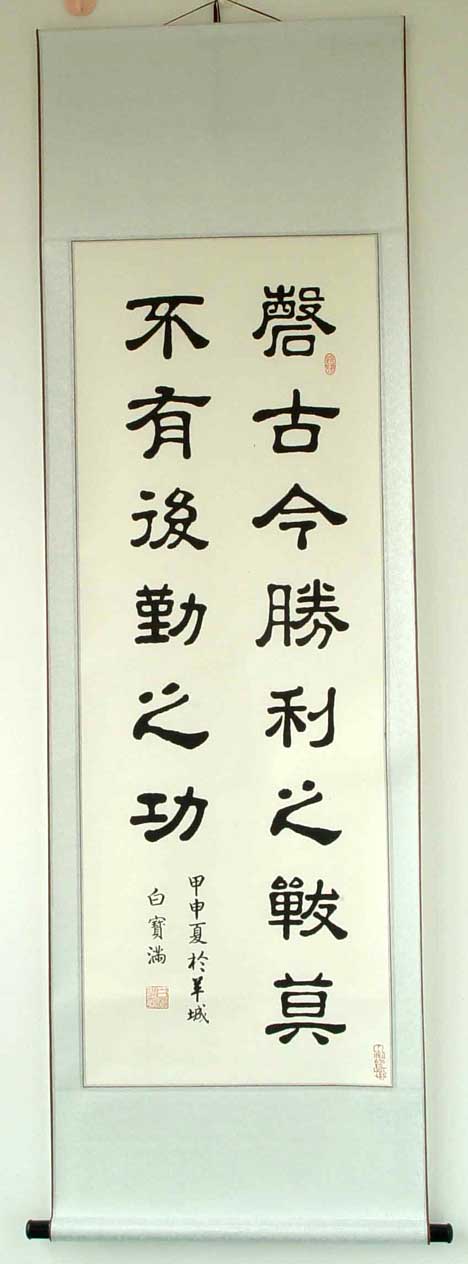 磬古今勝利之戰莫
不有後勤之功
甲申夏於羊城
白寶滿